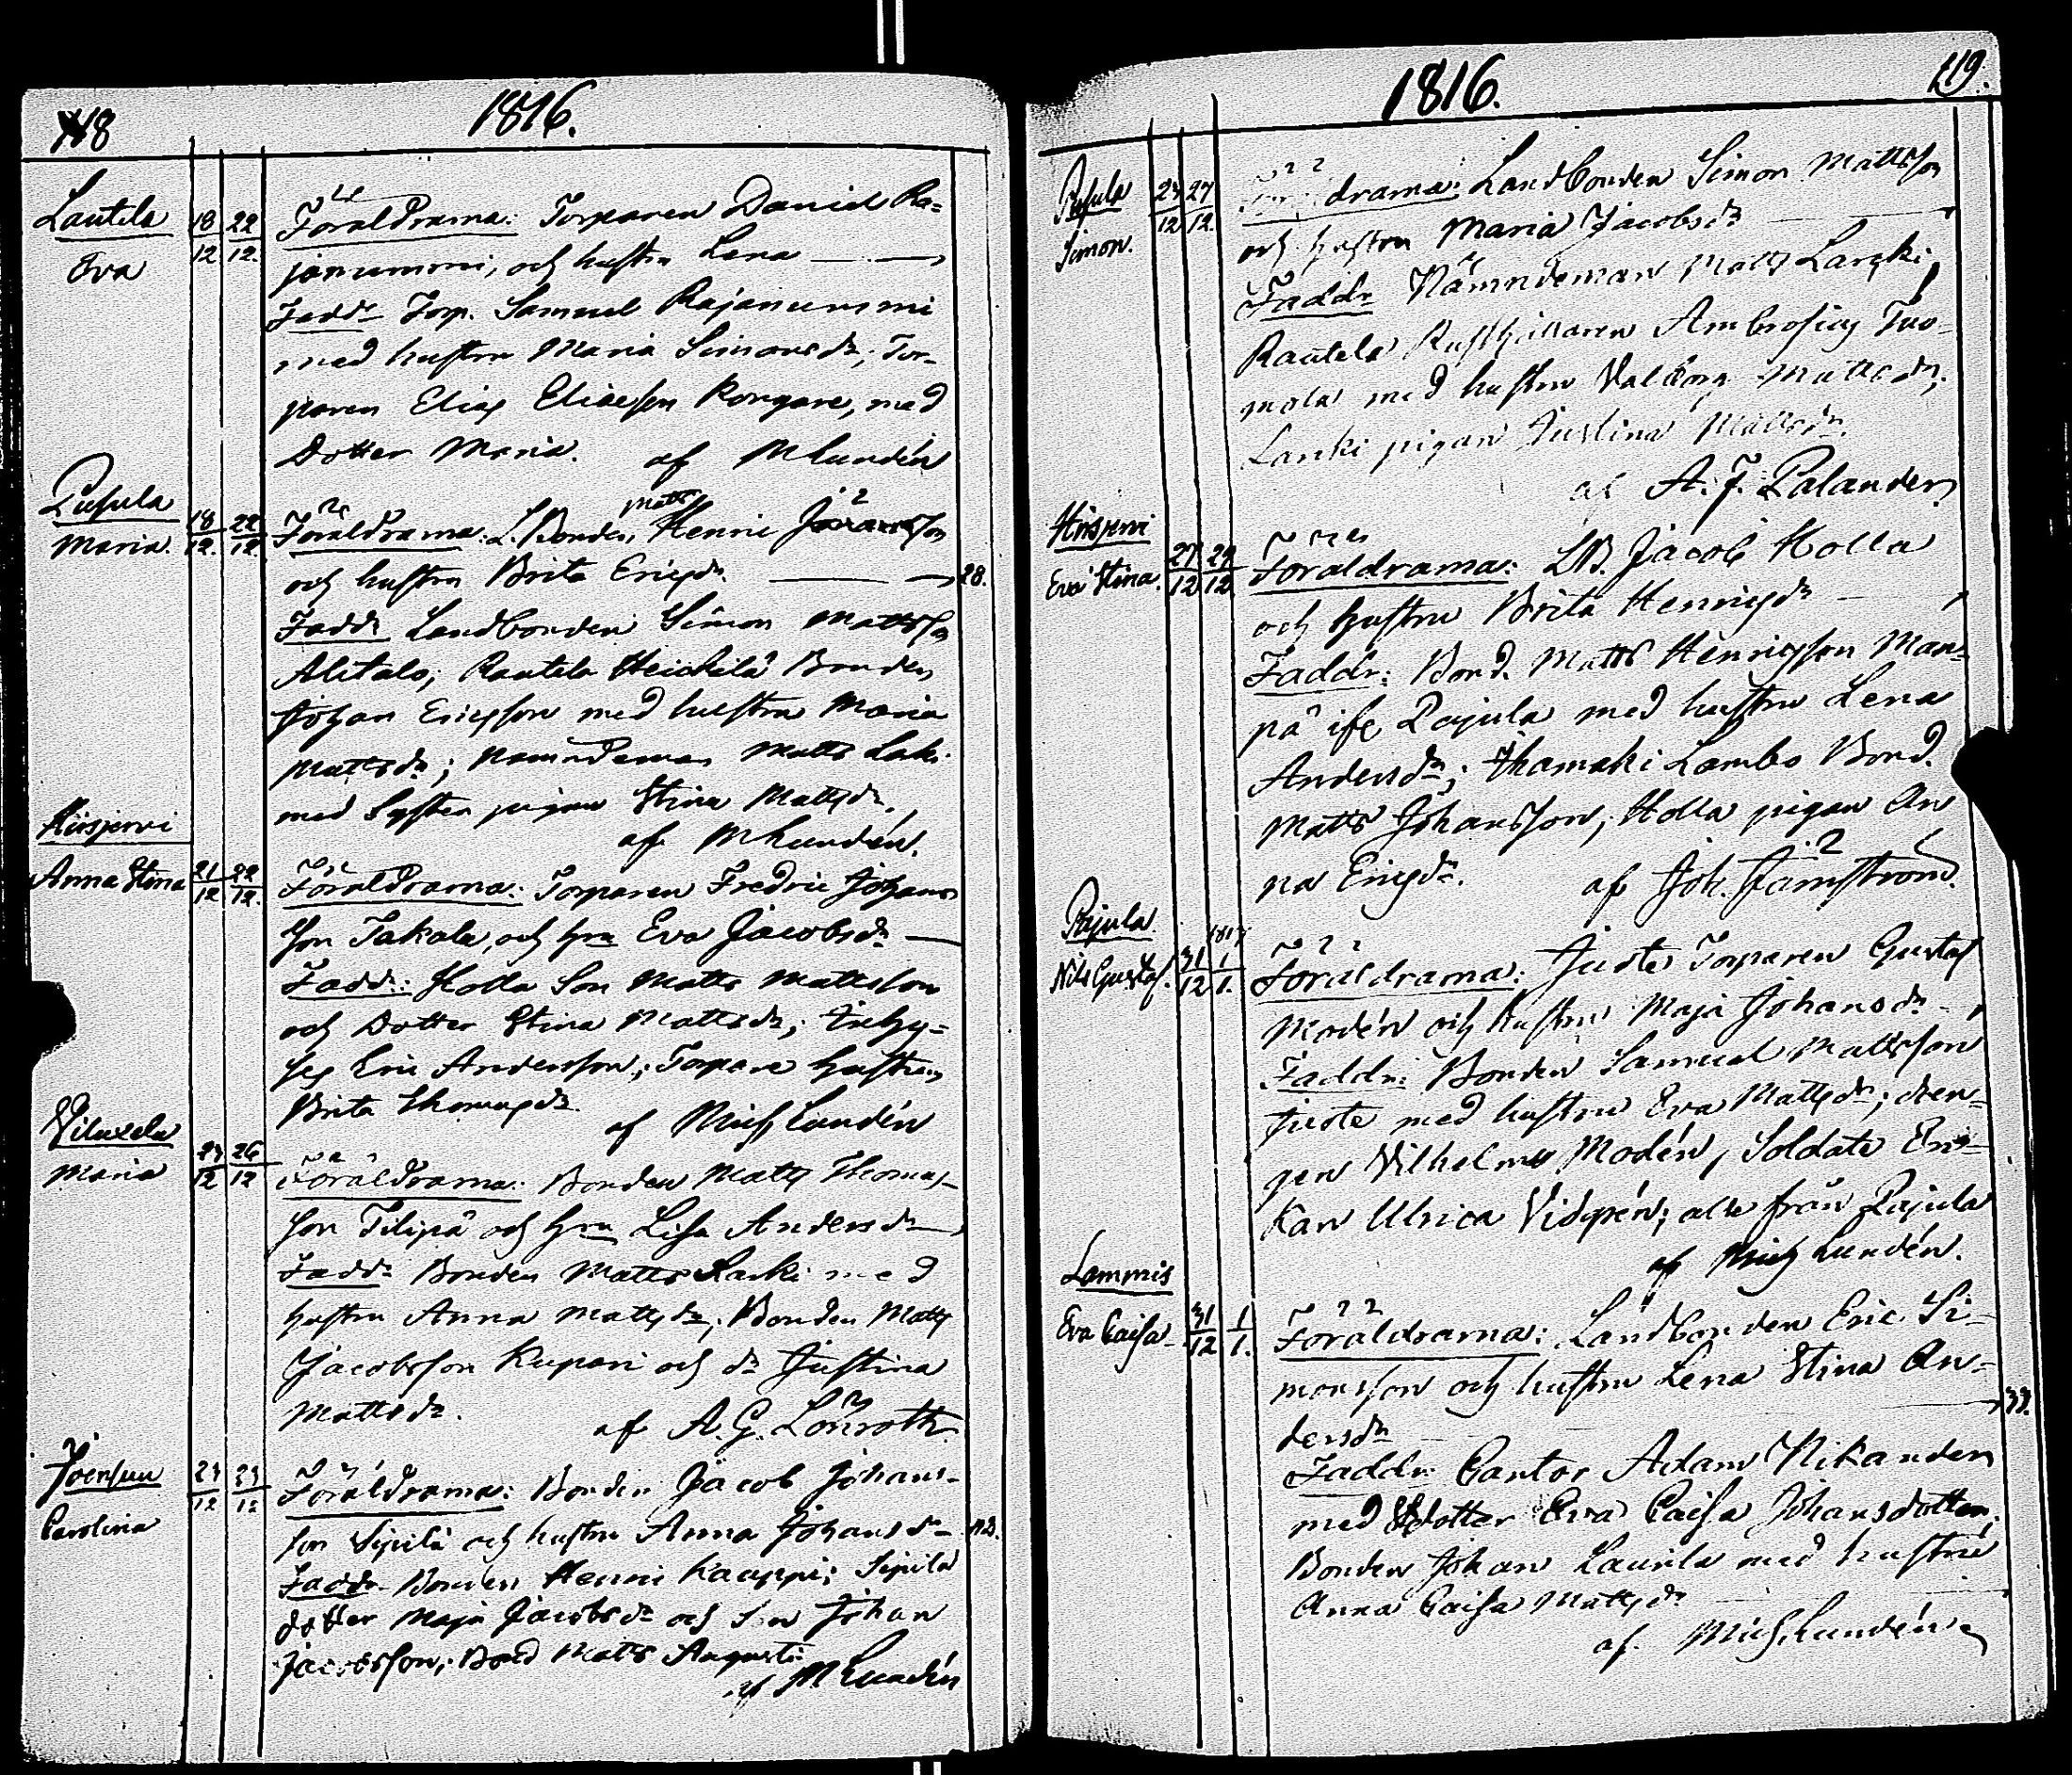 118
1816.
Lautela
Eva
18/12 22/12.
Föräldrarna: Torparen Daniel Ra-
janummi, och hustru Lena
Faddr Torp. Samuel Rajanummi
med hustru Maria Simonsdr; Tor-
paren Elias Eliaeson Korgare, med
Dotter Maria. af MLundén
Pusula
Maria.
18/12. 22/12
Föräldrarna: L.Bonden Matts Henric
och hustru Brita Ericsdr. 28.
Faddr Landbonden Simon Mattsson
Alitalo; Rautela Heickilä Bonden
Johan Ericsson med hustru Maria
Mattsdr; Nämndeman Matts Laki
med Syster pigan Stina Mattsdr.
af MLundén.
Hirsjervi
Anna Stina
21/12 22/12.
Föräldrarna: Torparen Fredric Johans
son Takala, och hru Eva Jacobsdr
Faddr: Holla Son Matts Mattsson
och Dotter Stina Mattsdr; Inhy-
ses Eric Andersson; Torpare hustrun
Brita Thomasdr. af Mich Lundén
Viluxela
Maria
24/12 26/12
Föräldrarna: Bonden Matts Thomas-
son Filipä och hru Lisa Andersdr
Faddr Bonden Matts Larki med
hustru Anna Mattsdr; Bonden Matts
Jacobsson Kupari och dr Justina
Mattsdr. af A. G. Lönroth
Joensuu
Carolina
Föräldrarna: Bonden Jacob Johans-
son Sipilä och hustru Anna Johansdr
Faddr Bonden Henric Kauppi; Sipilä
dotter Maja Jacobsdr och Son Johan
Jacobsson; Bond Matts Augusti
af MLundén
1816.
119.
Pusula
Simon.
27/12.
Föräldrarna: Landbonden Simon Mattsson
och hustru Maria Jacobsdr
Faddr Nämndeman Matts Larcki,
Rautela Rusthållaren Ambrosius Tuo-
mola med hustru Valborg Mattsdr;
Larki pigan Justina Mattsdr.
af A. F. Palander
Hirsjervi
Eva Stina.
27/12 29/12.
Föräldrarna: LB. Jacob Holla
och hustru Brita Henricsdr
Faddr: Bond. Matts Henricsson Man-
pä ifr Rajula med hustru Lena
Andersdr; Ihamäki Lambo Bond.
Matts Johansson, Holla pigan An
na Ericsdr. af Joh. Järnström.
Rajula
Nils Gustaf.
31/12 1817 1/1.
Föräldrarna: Juste Torparen Gustaf
Modén och hustru Maja Johansdr
Faddr: Bonden Samuel Mattsson
Juste med hustru Eva Mattsdr; dren-
gen Vilhelm Modén, Soldate En-
kan Ulrica Vidgrén; alla från Rajula
af Mich Lundén.
Lammis
Eva Caisa
31/12 1/1.
Föräldrarna: Landbonden Eric Si-
monsson och hustru Lena Stina An-
dersdr 33.
Faddr: Cantor Adam Nikander
med dotter Eva Caisa Johansdotter,
Bonden Johan Laurila med hustru
Anna Caisa Mattsdr
af Mich Lundén